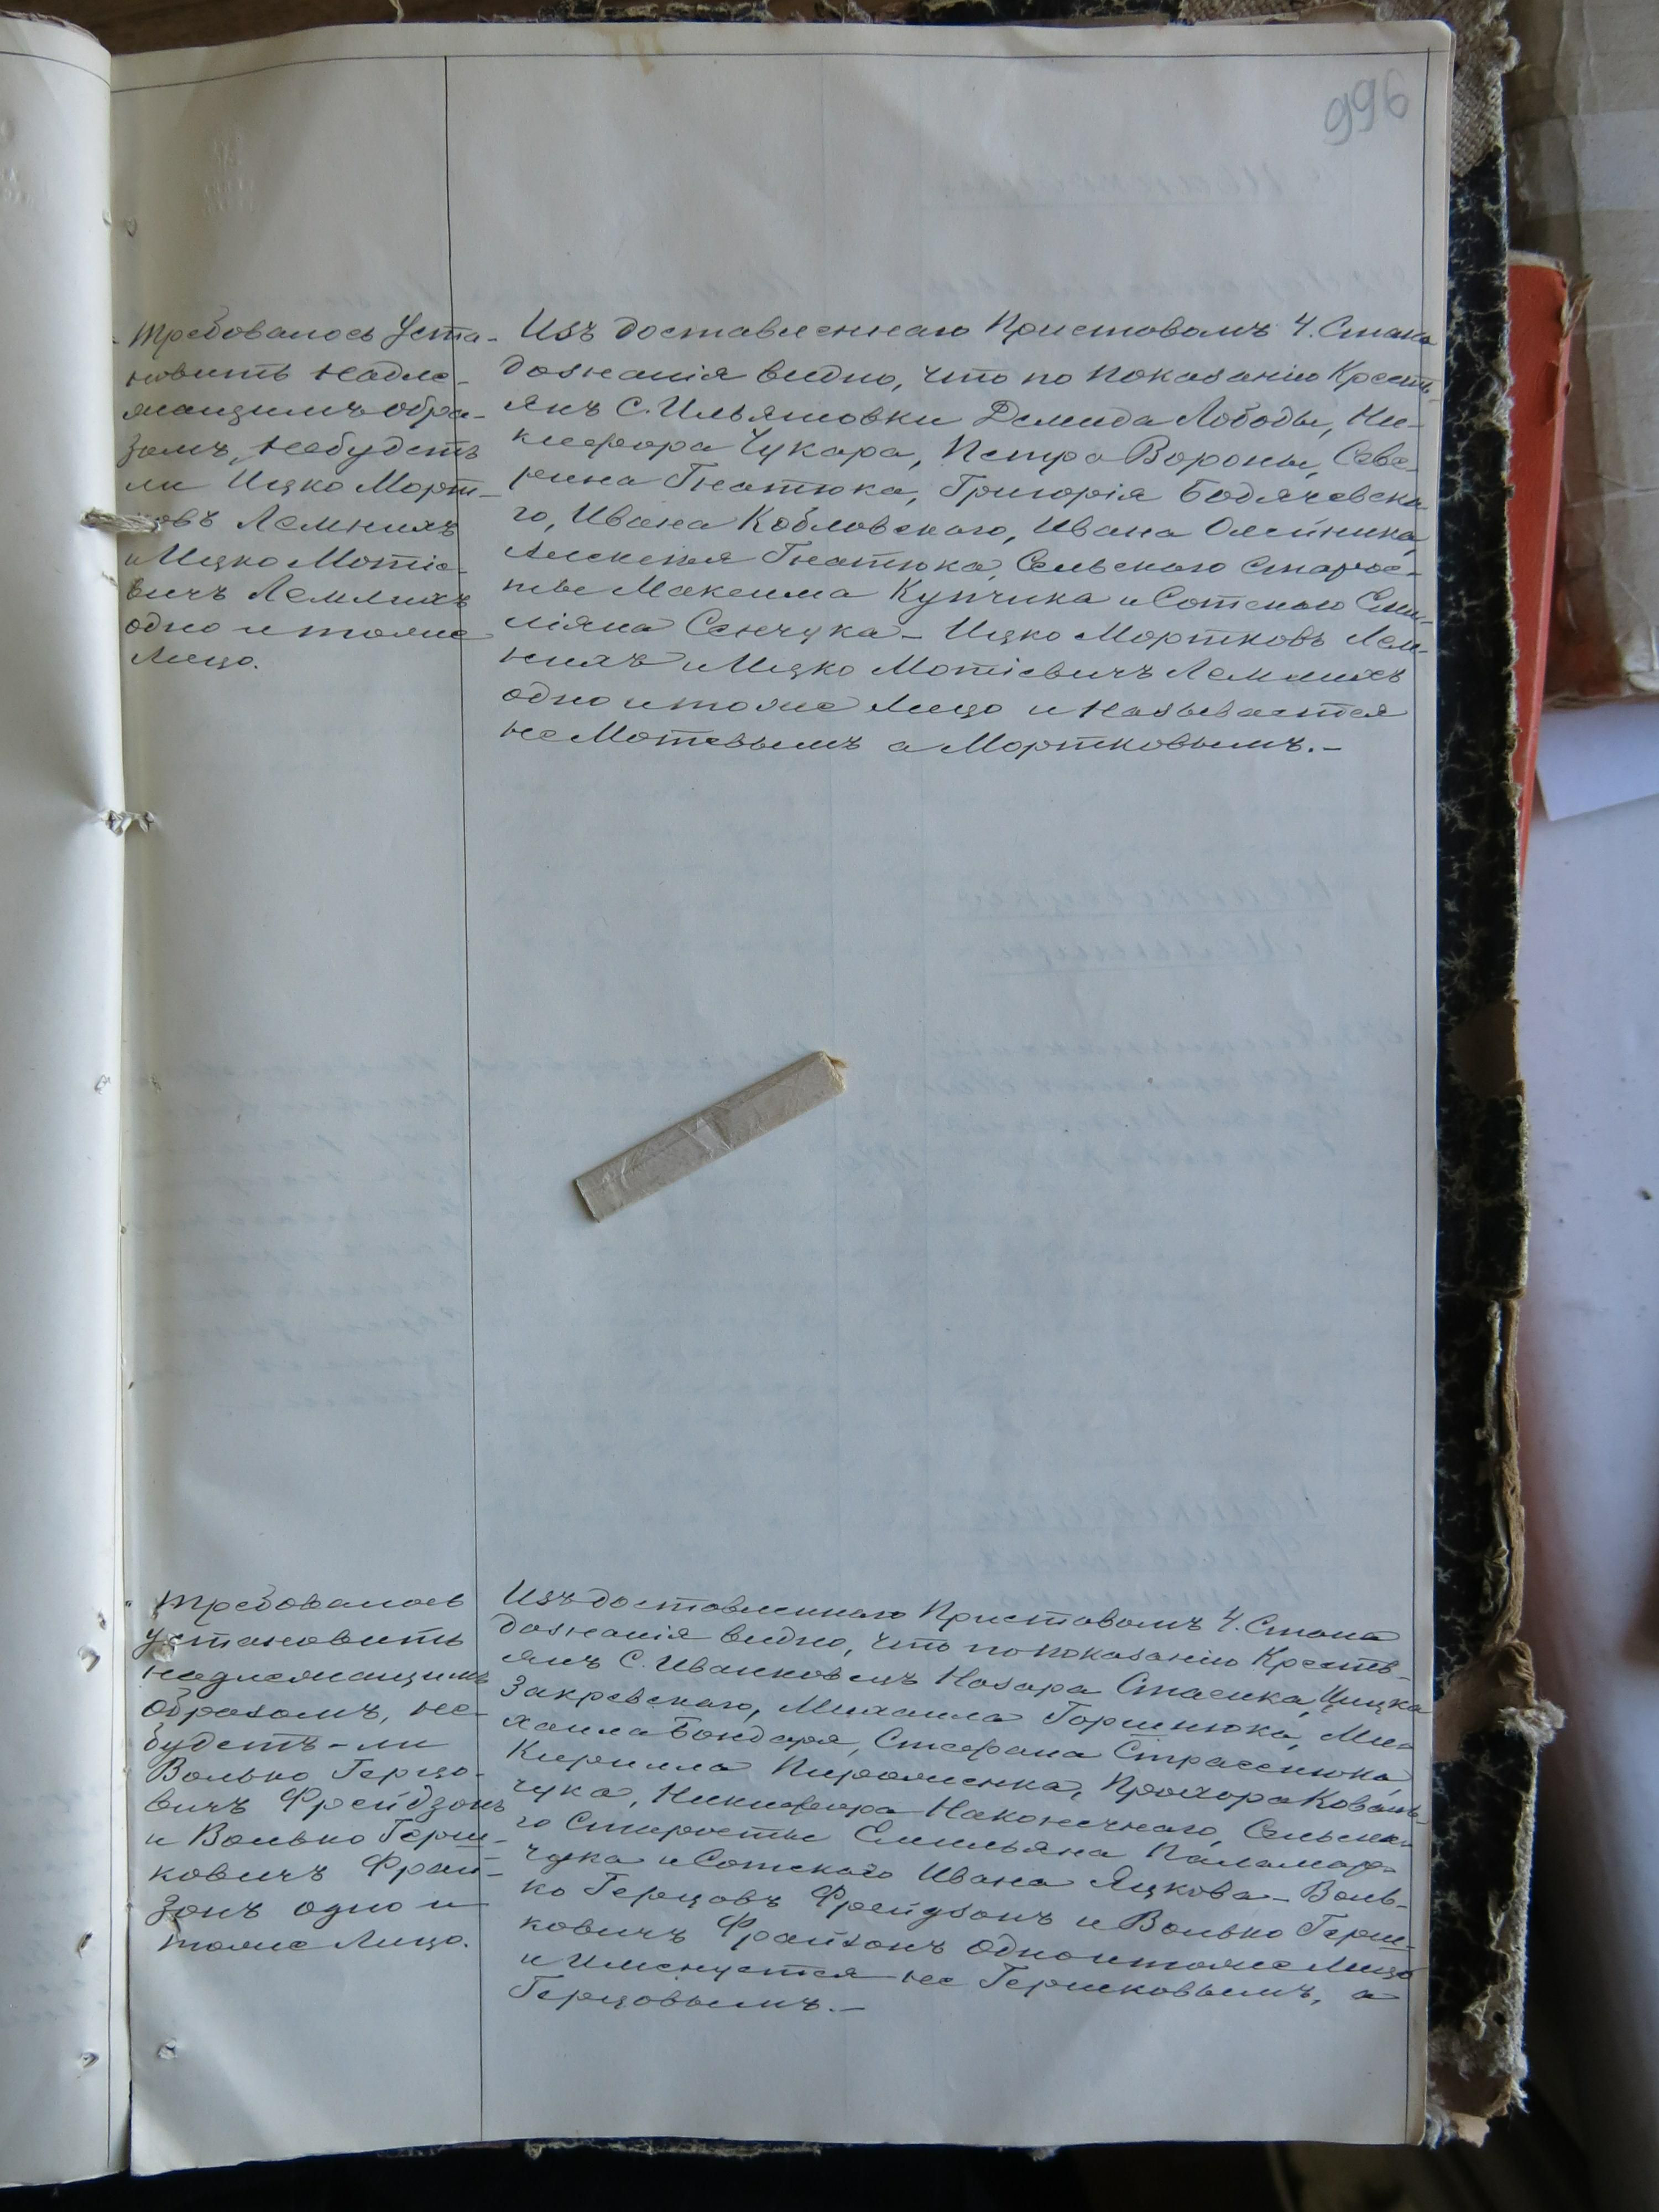 996
Требовалось Уста-
новить надле-
жащимъ обра-
зомъ, небудетъ
ли Ицко Морт-
ковъ Лемнихъ
и Ицко Мотіе-
вичъ Лемлихъ
одно и тоже
Лицо.
Изъ доставленнаго Приставомъ 4. Стана
дознанія видно, что по показанію Кресть-
янъ С. Ильяшовки Демида Лободы, Ни-
кифора Чукара, Петра Вороны, Севе-
рина Гнатюка, Григорія Бодячевска-
го, Ивана Кобловскаго, Ивана Олейника,
Алексея Гнатюка, Сельскаго Старос-
ты Максима Купчика и Сотскаго Еми-
ліяна Сенчука - Ицко Мортковъ Лем-
нихъ и Ицко Мотіевичъ Лемлихъ
одно и тоже Лицо и называется
не Мотевымъ а Мортковымъ.-
Требовалось
установить
надлежащимъ
образомъ, не-
будетъ-ли
Волько Герцо-
вичъ Фрейдзонъ
и Волько Герш-
ковичъ Фрай-
зонъ одно и
тоже Лицо.
Изъ доставленнаго Приставомъ 4. Стана
дознанія видно, что по показанію Кресть-
янъ С. Иванковецъ Назара Стасика,
Закревскаго, Михаила Горшнюка, Ми-
хаила Бондаря, Стефана
Кирилла Прохора Коваль-
чука, Никифора Наконечнаго, Сельска-
го Старосты Емельяна Паламар-
чука и Сотскаго Ивана Яцкова - Воль-
ко Герцовъ Фрейдзонъ и Волько Герш-
ковичъ Фрайзонъ одно и тоже Лицо
и Именуется не Гершковымъ, а
Герцовымъ.-